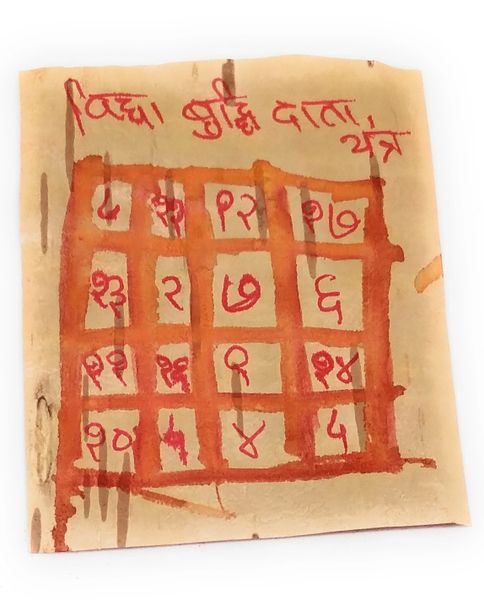 विद्या बुद्धि दाता
यंत्र
८ १२ १७
१३ २ ७ ६
१६ १४
१० ५ ४ ५